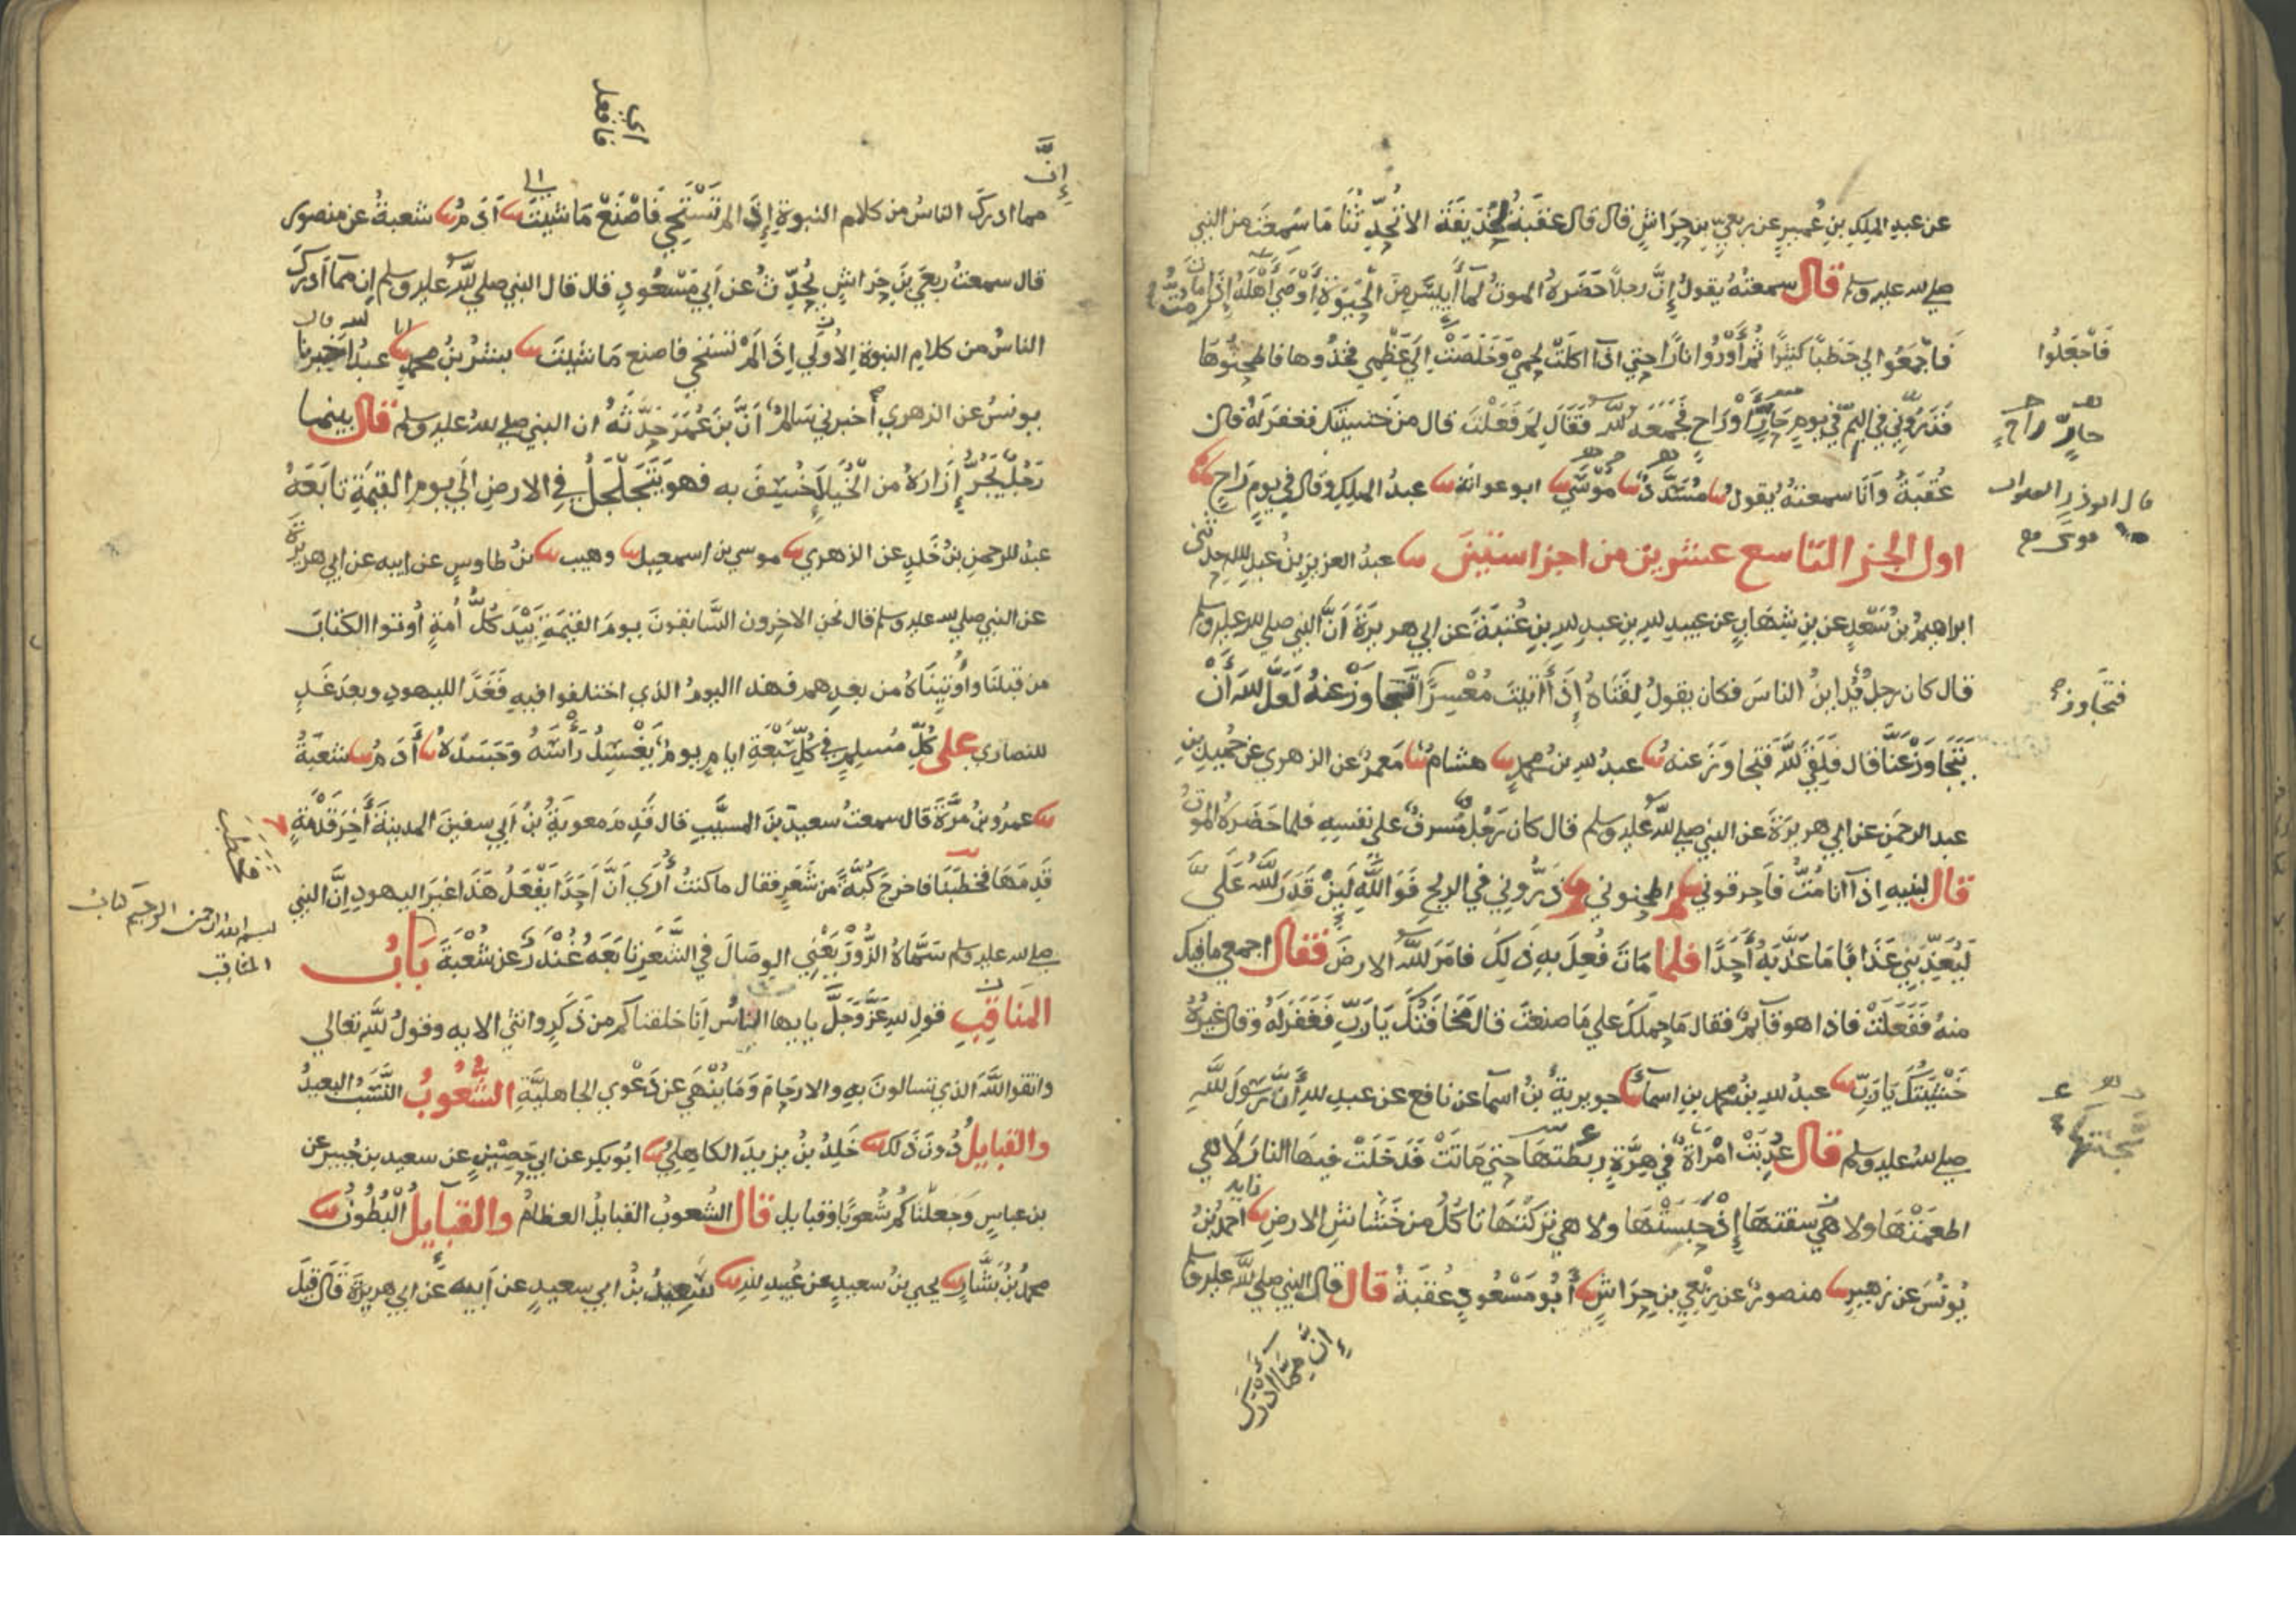 عن عبد الملك بن عمير عن ربعي بن حراش قال قال عقبة لحذيفة الا تحدثنا ما سمعت من النبي
صلى الله عليه وسلم قال سمعته يقول إن رجلا حضره الموت لما أيس من الحيوة أوصى أهله إذا مت
فاجمعوا لي حطبا كثيرا ثم أوروا نارا حتى اذا اكلت لحمي وخلصت الى عظمي فخذوها فاطحنوها
فاجعلوا
فذروني في اليم في يوم حار أو راح فجمعه الله فقال لم فعلت قال من خشيتك فغفر له قال
حار راح
عقبة وأنا سمعته يقول مسدد موسى ابو عوانة عبد الملك وقال في يوم راح
قال ابو ذر الصواب
موسى
اول الجز التاسع عشر من اجزا ستين عبد العزيز بن عبد الله حدثني
ابراهيم بن سعد عن بن شهاب عن عبيد الله بن عبد الله بن عتبة عن ابي هريرة أن النبي صلى الله عليه وسلم
قال كان رجل يداين الناس فكان يقول لفتاه إذا أتيت معسرا فتجاوز عنه لعل الله أن
فتجاوز
يتجاوز عنا قال فلقي الله فتجاوز عنه عبد الله بن محمد هشام معمر عن الزهري عن حميد بن
عبد الرحمن عن ابي هريرة عن النبي صلى الله عليه وسلم قال كان رجل مسرف على نفسه فلما حضره الموت
قال لبنيه اذا أنا مت فأحرقوني ثم اطحنوني ثم ذروني في الريح فوالله لين قدر الله علي
ليعذبني عذابا ما عذبه أحدا فلما مات فعل به ذلك فامر الله الارض فقال اجمعي ما فيك
منه ففعلت فاذا هو قايم فقال ما حملك على ما صنعت قال مخافتك يا رب فغفر له وقال غيره
خشيتك يا رب عبد الله بن محمد بن اسمآ جويرية بن اسمآ عن نافع عن عبد الله أن رسول الله
صلى الله عليه وسلم قال عذبت امرأة في هرة ربطتها حتى ماتت فدخلت فيها النار لا هي
سجنتها
اطعمتها ولا هي سقتها إذ حبستها ولا هي تركتها تاكل من خشاش الارض أحمد بن
يونس عن زهير منصور عن ربعي بن حراش أبو مسعود عقبة قال قال النبي صلى الله عليه وسلم
إن مما أدرك
إن
اي فافعل
مما ادرك الناس من كلام النبوة إذا لم تستحي فاصنع ما شيت آدم شعبة عن منصور
قال سمعت ربعي بن حراش يحدث عن أبي مسعود قال قال النبي صلى الله عليه وسلم إن مما أدرك
الناس من كلام النبوة الأولى إذا لم تستحي فاصنع ما شيت بشر بن محمد عبد الله اخبرنا
يونس عن الزهري أخبرني سالم أن بن عمر حدثه ان النبي صلى الله عليه وسلم قال بينما
رجل يجر إزاره من الخيلا خسف به فهو يتجلجل في الارض الى يوم القيمة تابعه
عبد الرحمن بن خلد عن الزهري موسى بن اسمعيل وهيب بن طاوس عن ابيه عن ابي هريرة
عن النبي صلى الله عليه وسلم قال نحن الاخرون السابقون يوم القيمة بيد كل أمة أوتوا الكتاب
من قبلنا وأوتيناه من بعدهم فهذا اليوم الذي اختلفوا فيه فغدا لليهود وبعد غد
للنصارى على كل مسلم في كل سبعة ايام يوم يغسل رأسه وجسده آدم شعبة
عمرو بن مرة قال سمعت سعيد بن المسيب قال قدم معوية بن أبي سفين المدينة أخر قدمة
قدمها فخطبنا فاخرج كبة من شعر فقال ما كنت أرى أن أحدا يفعل هذا غير اليهود إن النبي
صلى الله عليه وسلم سماه الزور يعني الوصال في الشعر تابعه غندر عن شعبة باب
بسم الله الرحمن الرحيم كتاب
المناقب
المناقب قول الله عز وجل يا يها الناس إنا خلقناكم من ذكر وانثى الايه وقول الله تعالى
واتقوا الله الذي تسالون به والارحام وما ينهى عن دعوى الجاهلية الشعوب النسب البعيد
والقبايل دون ذلك خلد بن يزيد الكاهلي ابو بكر عن ابي حصين عن سعيد بن جبير عن
بن عباس وجعلناكم شعوبا وقبايل قال الشعوب القبايل العظام والقبايل البطون
محمد بن بشار يحيى بن سعيد عن عبيد الله سعيد بن ابي سعيد عن أبيه عن ابي هريرة قال قيل